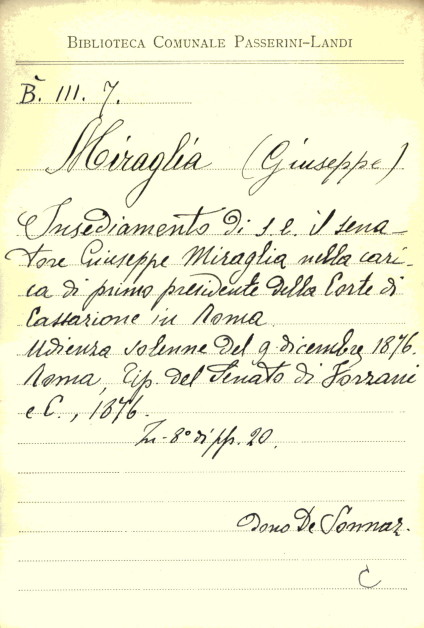 BIBLIOTECA COMUNALE PASSERINI-LANDI
B. III. 7.
Miraglia (Giuseppe)
Insediamento di s. e. il sena-
tore Giuseppe Miraglia nella cari-
ca di primo presidente della Corte di
Cassazione in Roma.
Udienza solenne del 9 dicembre 1876.
Roma, Tip. del Senato di Forzani
e C., 1876.
In-8° di pp. 20.
dono De Sonnaz.
C